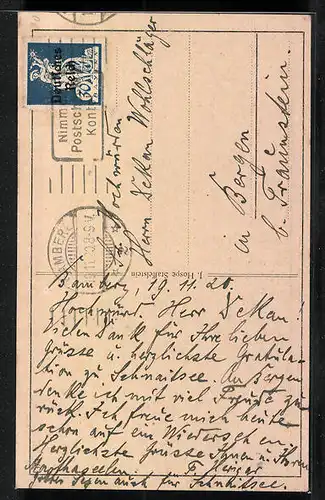 Deutsches
Reich
30
Nimm
Postsch
Kont
BAMBERG
19.11.20. 8-9 V.
Sr. Hochwürden
Herrn Dekan Wohlschläger
in Bergen
b. Traunstein.
J. Hospe Staffelstein
Bamberg, 19.11.20.
Hochwürd. Herr Dekan!
Vielen Dank für Ihre lieben
Grüsse u. herzlichste Gratula-
tion zu Schnaitsee. An Bergen
denke ich mit viel Freude zu-
rück. Ich freue mich heute
schon auf ein Wiedersehen.
Herzlichste Grüsse Ihnen u. Ihren
Gottes Segen auch für Schnaitsee.